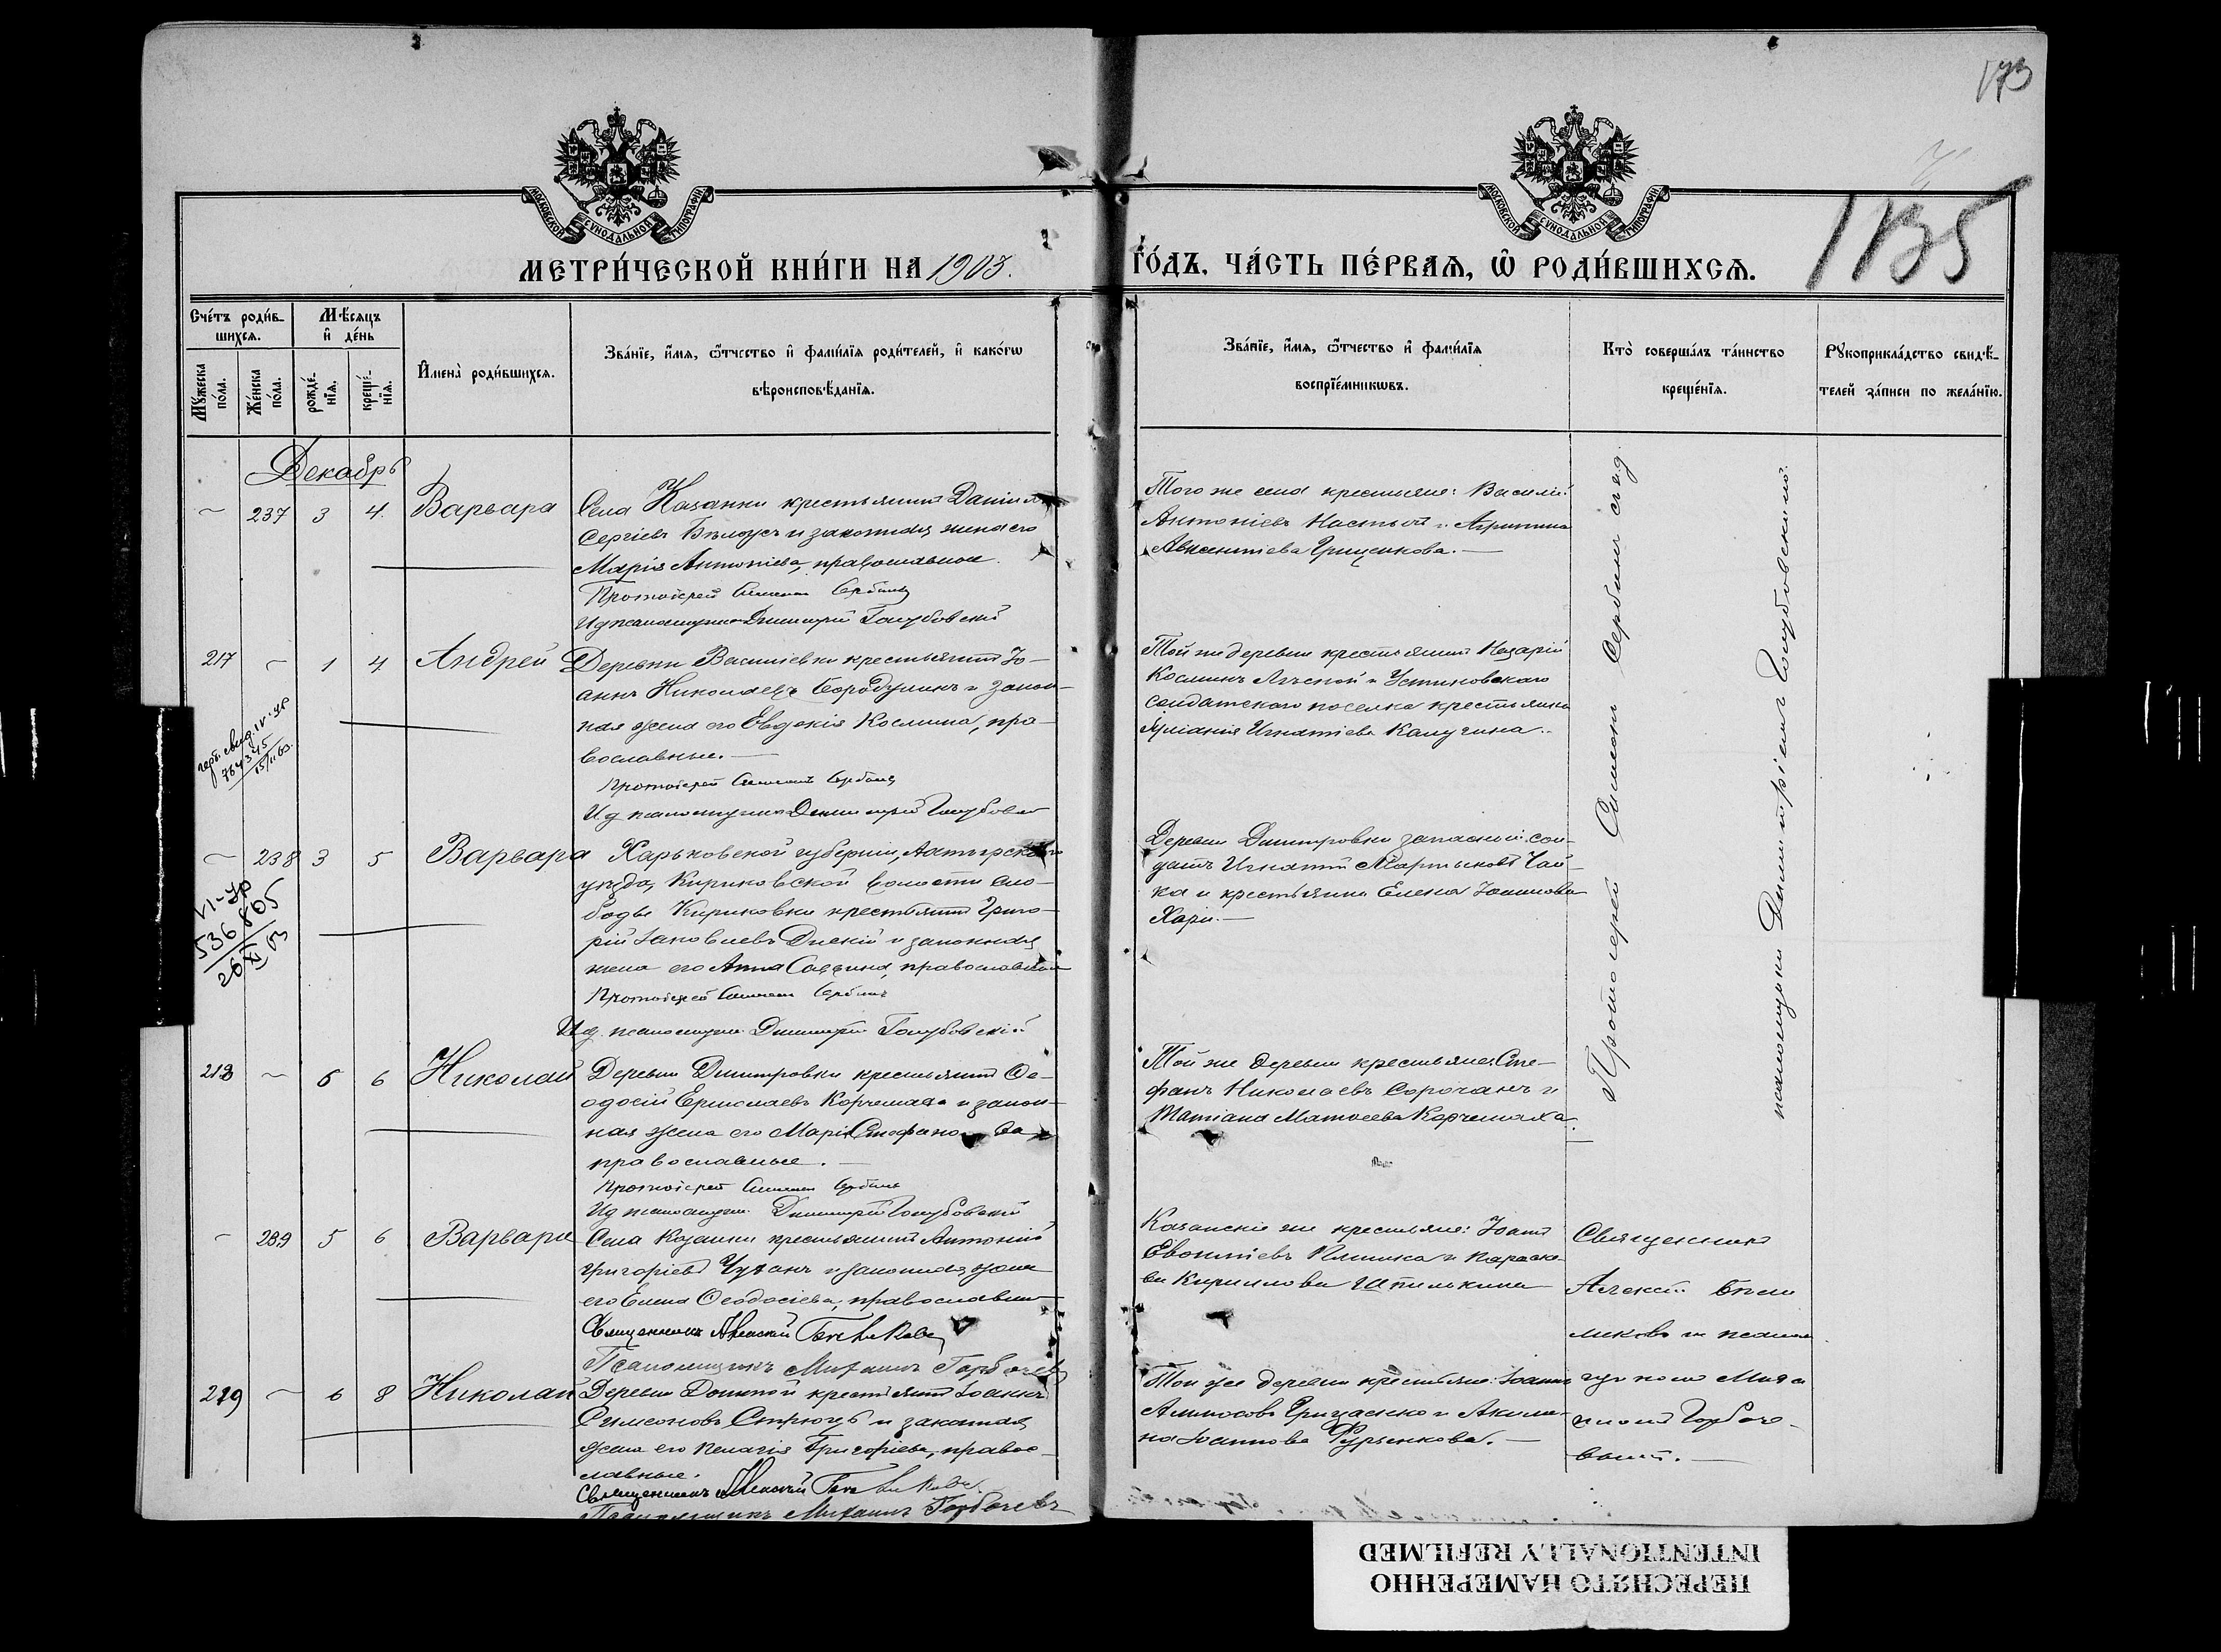 173
1135
МОСКОВСКОЙ СѴНОДАЛЬНОЙ ТИПОГРАФІИ
МОСКОВСКОЙ СѴНОДАЛЬНОЙ ТИПОГРАФІИ
МЕТРИ́ЧЕСКОЙ КНИ́ГИ НА 1903.
ГО́ДЪ, ЧА́СТЬ ПЕ́РВАѦ, Ѡ҆ РОДИ́ВШИХСѦ.
Сче́тъ роди́в-
шихсѧ.
Мꙋ́жеска по́ла.
Же́нска по́ла.
Мѣ́сѧцъ
и҆ де́нь
рожде́-
нїѧ.
креще́-
нїѧ.
И҆мена̀ роди́вшихсѧ.
Зва́нїе, и҆́мѧ, ѻ҆́тчество и҆ фами́лїѧ роди́телей, и҆ како́гѡ
вѣроисповѣ́данїѧ.
Зва́нїе, и҆́мѧ, ѻ҆́тчество и҆ фами́лїѧ
воспрїе́мникѡвъ.
Кто̀ соверша́лъ та́инство
креще́нїѧ.
Рꙋкоприкла́дство свидѣ́-
телей за́писи по жела́нїю.
Декабрь
237 3 4. Варвара
Села Казанки крестьянинъ Даніилъ
Сергіевъ Бѣлоусъ и законная жена его
Марія Антоніева, православные.
Протоіерей Симеонъ Сербинъ
И д псаломщика Димитрій Голубовскій
Того же села крестьяне: Василій
Антоніевъ и Агрипина
Авксентіева Гриценкова.
217 1 4 Андрей
Деревни Васильевки крестьянинъ Іо-
аннъ Николаевъ Бородулинъ и закон-
ная жена его Евдокія Космина, пра-
вославные.
Протоіерей Симеонъ Сербинъ
И д псаломщика Димитрій Голубовскій
Той же деревни крестьянинъ Назарій
Косминъ и Устиновскаго
солдатскаго поселка крестьянка
Іуліанія Игнатіева Калугина.
764345
15/II 63.
238 3 5 Варвара
Харьковской губерніи, Ахтырскаго
уѣзда, Кириковской волости сло-
боды Кириковки крестьянинъ Григо-
рій Іаковлевъ и законная
жена его Анна Саввина, православные
Протоіерей Симеонъ Сербинъ
И д. псаломщика Димитрій Голубовскій
Деревни Димитровки запасной сол-
датъ Игнатій Мартыновъ Чай-
ка и крестьянка Елена Іоаннова
536805
26/XI 63
218 5 6 Николай
Деревни Димитровки крестьянинъ Ѳе-
одосій Ермолаевъ Корчемаха и закон-
ная жена его Марія Стефанова
православные.
Протоіерей Симеонъ Сербинъ
И д псаломщика Димитрій Голубовскій
Той же деревни крестьяне: Сте-
фанъ Николаевъ Сорочанъ и
Татіана Матѳеева Корчемаха.
Протоіерей Симеонъ Сербинъ съ и.д.
псаломщика Димитріемъ Голубовскимъ.
239 5 6 Варвара
Села Казанки крестьянинъ Антоній
Григоріевъ и законная жена
его Елена Ѳеодосіева, православные
Священникъ Алексій
Псаломщикъ Михаилъ Горбачевъ
Казанскіе же крестьяне: Іоаннъ
и Параске-
ва Кириллова Шпилькина
Священникъ
Алексій
и псалом-
щикомъ Миха-
иломъ Горбаче-
вымъ.
219 6 8 Николай
Деревни крестьянинъ Іоаннъ
Симеоновъ и законная
жена его Пелагія Григоріева, право-
славные.
Священникъ Алексій
Псаломщикъ Михаилъ Горбачевъ
Той же деревни крестьяне: Іоаннъ
Аммосовъ Гриценко и Акили-
на Іоаннова
ПЕРЕСНЯТО НАМЕРЕННО
INTENTIONALLY REFILMED